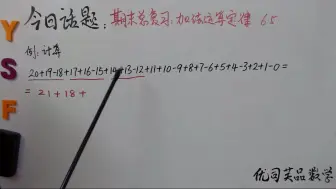 今日话题：期末总复习，加法运算定律 65
例：计算
20+19-18+17+16-15+14+13-12+11+10-9+8+7-6+5+4-3+2+1-0=
= 21+18+
YSF
优司芙品数学